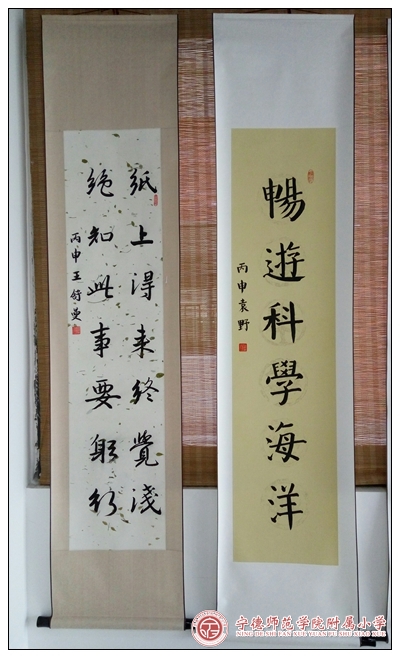 暢遊科學海洋
丙申袁野
紙上得来终覺淺
绝知此事要躬行
丙申王舒曼
宁德师范学院附属小学
NING DE SHI FAN XUE YUAN FU SHU XIAO XUE